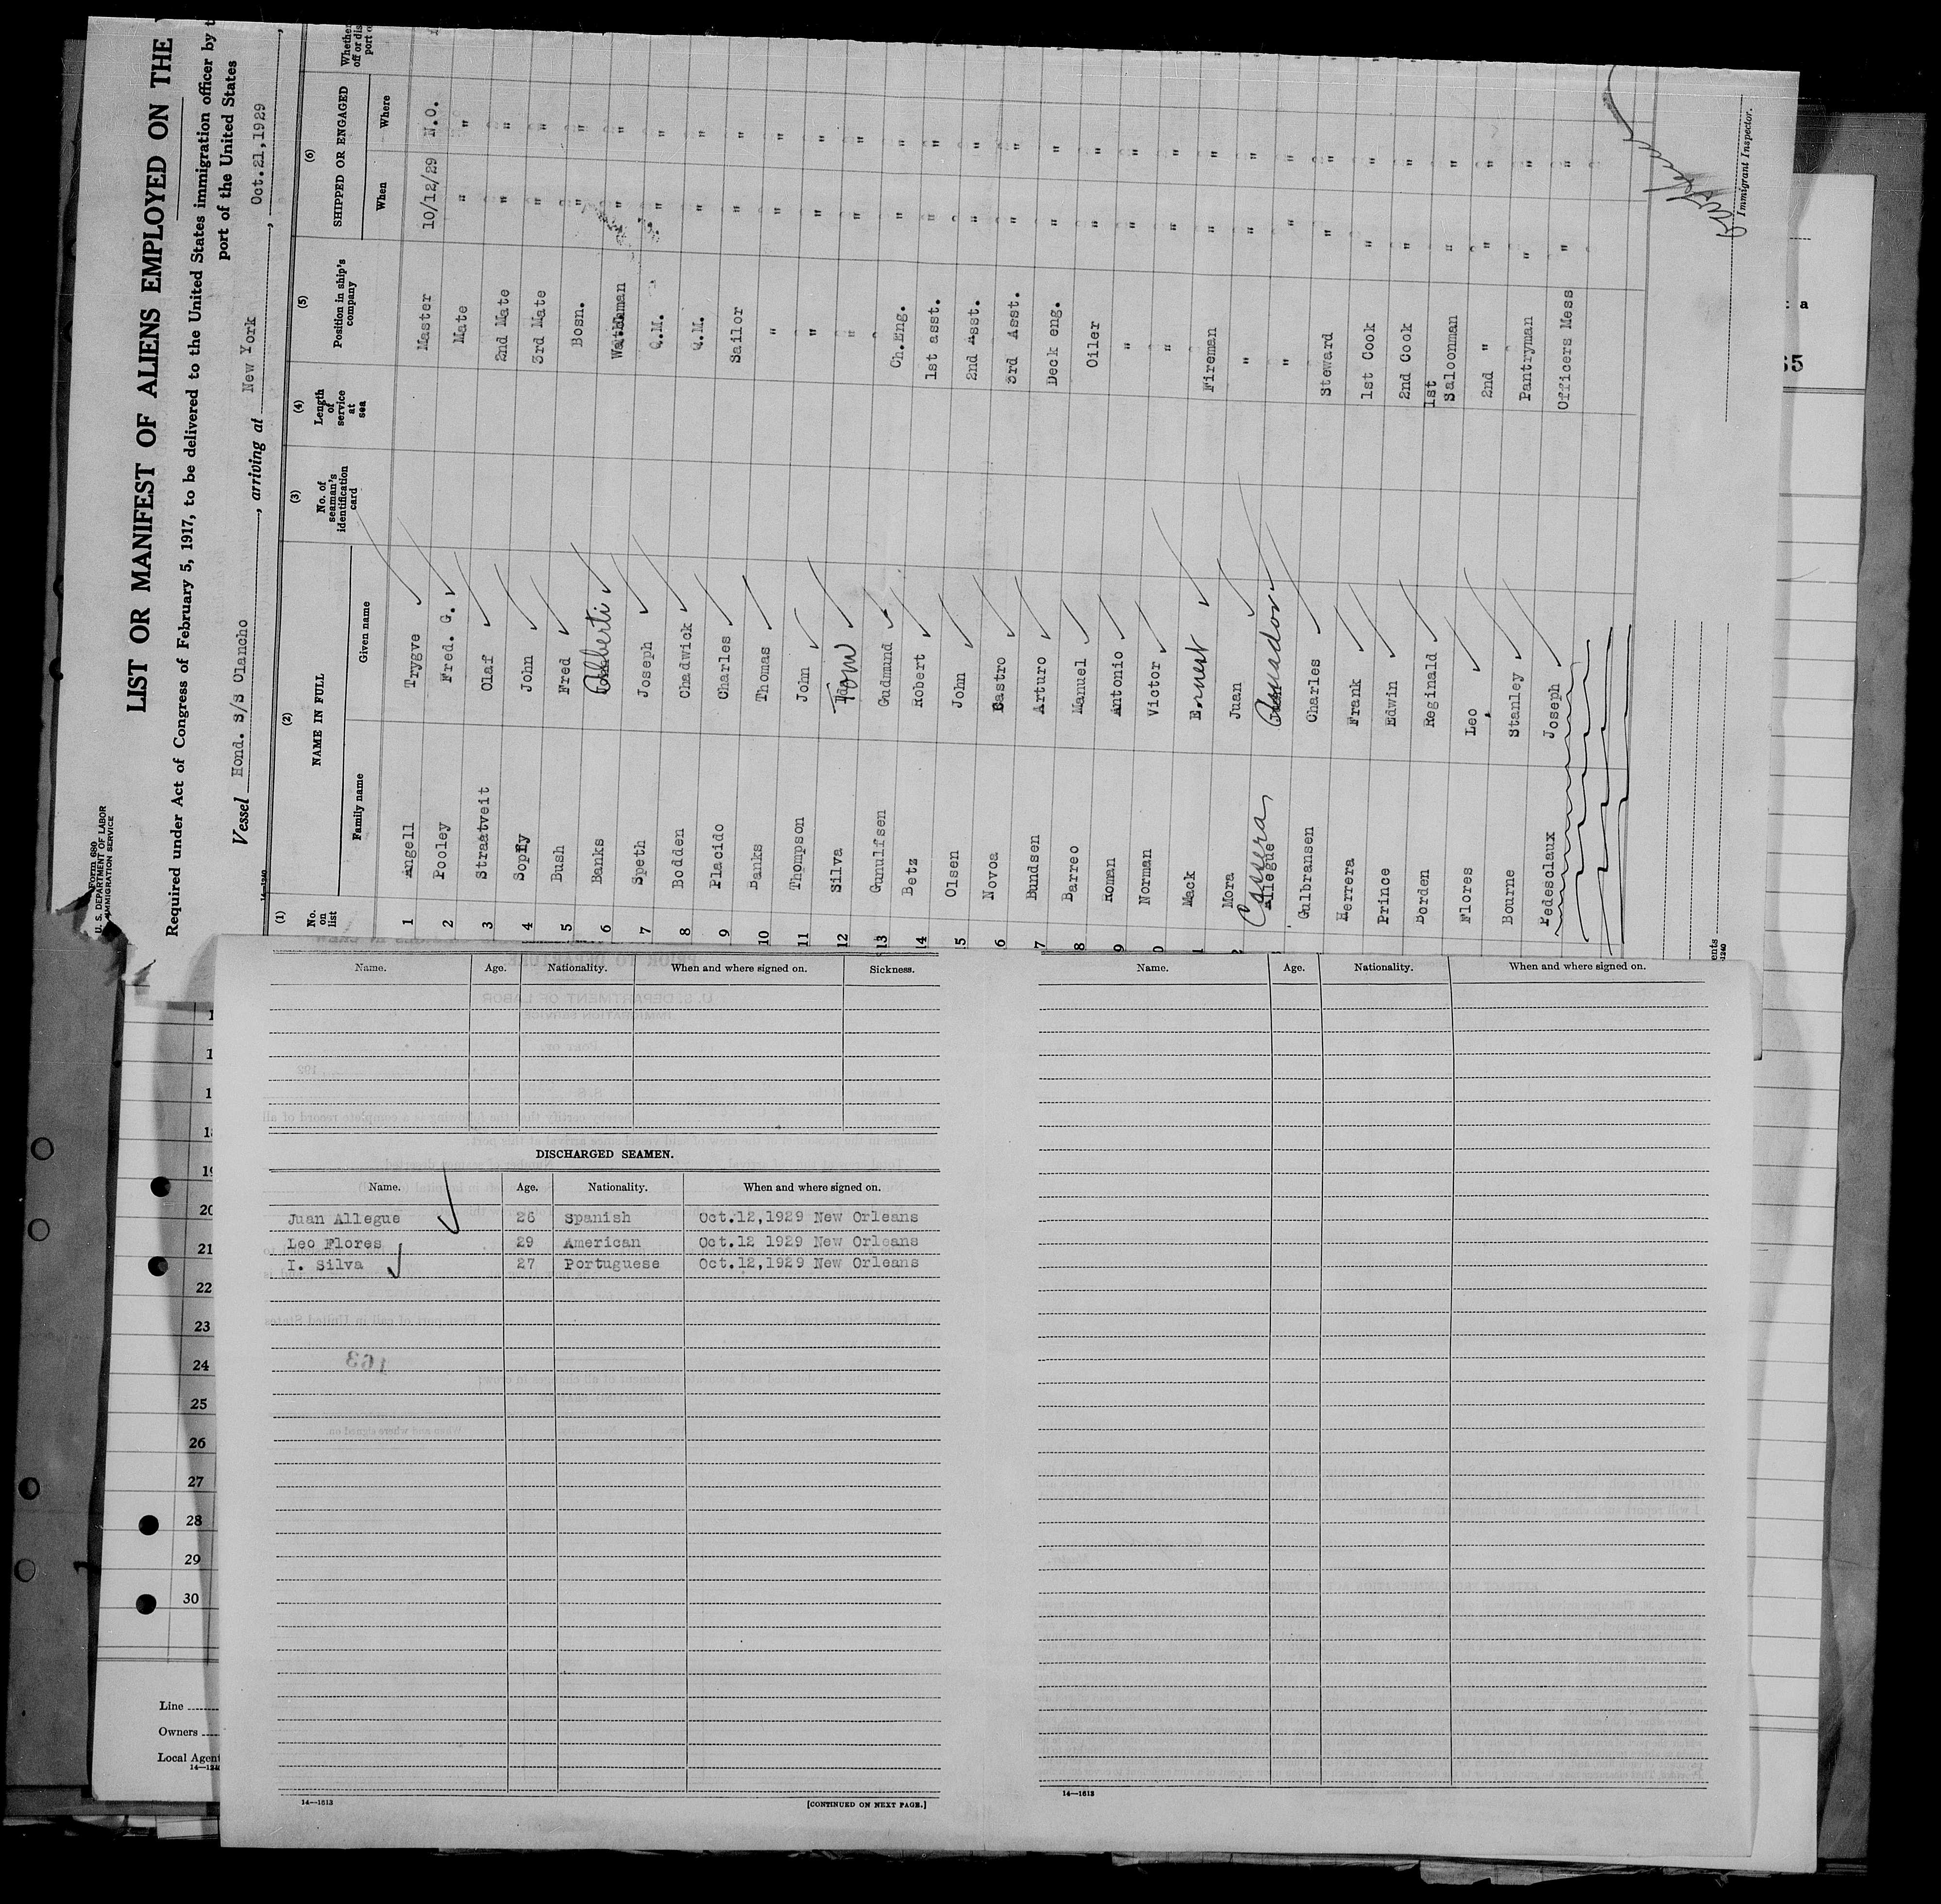 Form 680
U. S. DEPARTMENT OF LABOR
IMMIGRATION SERVICE
LIST OR MANIFEST OF ALIENS EMPLOYED ON THE
Required under Act of Congress of February 5, 1917, to be delivered to the United States immigration officer by
port of the United States
Vessel Hond. S/S Olancho, arriving at New York, Oct.21,1929,
14—1240
(1) (2) (3) (4) (5) (6)
No. on list NAME IN FULL No. of seaman's identification card Length of service at sea Position in ship's company SHIPPED OR ENGAGED Whether
Family name Given name When Where
1 Angell Trygve Master 10/12/29 N.O.
2 Pooley Fred. G. Mate " "
3 Straatveit Olaf 2nd Mate " "
4 John 3rd Mate " "
5 Bush Fred Bosn. " "
6 Banks " "
7 Speth Joseph Q.M. " "
8 Bodden Chadwick Q.M. " "
9 Placido Charles Sailor " "
10 Banks Thomas " " "
11 Thompson John " " "
12 Silva Tom " " "
13 Gunulfsen Gudmund Ch.Eng. " "
14 Betz Robert 1st asst. " "
5 Olsen John 2nd Asst. " "
6 Novoa Castro 3rd Asst. " "
7 Bundsen Arturo Deck eng. " "
8 Barreo Manuel Oiler " "
9 Roman Antonio " " "
0 Norman Victor " " "
1 Mack Ernest Fireman " "
2 Mora Juan " " "
Allegue Cassera " " "
Gulbransen Charles Steward " "
Herrera Frank 1st Cook " "
Prince Edwin 2nd Cook " "
Borden Reginald 1st Saloonman " "
Flores Leo 2nd " " "
Bourne Stanley Pantryman " "
Pedesclaux Joseph Officers Mess " "
Immigrant Inspector.
Name. Age. Nationality. When and where signed on. Sickness.
DISCHARGED SEAMEN.
Name. Age. Nationality. When and where signed on.
Juan Allegue 26 Spanish Oct.12,1929 New Orleans
Leo Flores 29 American Oct.12 1929 New Orleans
I. Silva 27 Portuguese Oct.12,1929 New Orleans
14—1613
[CONTINUED ON NEXT PAGE.]
Name. Age. Nationality. When and where signed on.
14—1613
19
20
21
22
23
24
25
26
27
28
29
30
Line
Owners
Local Agent